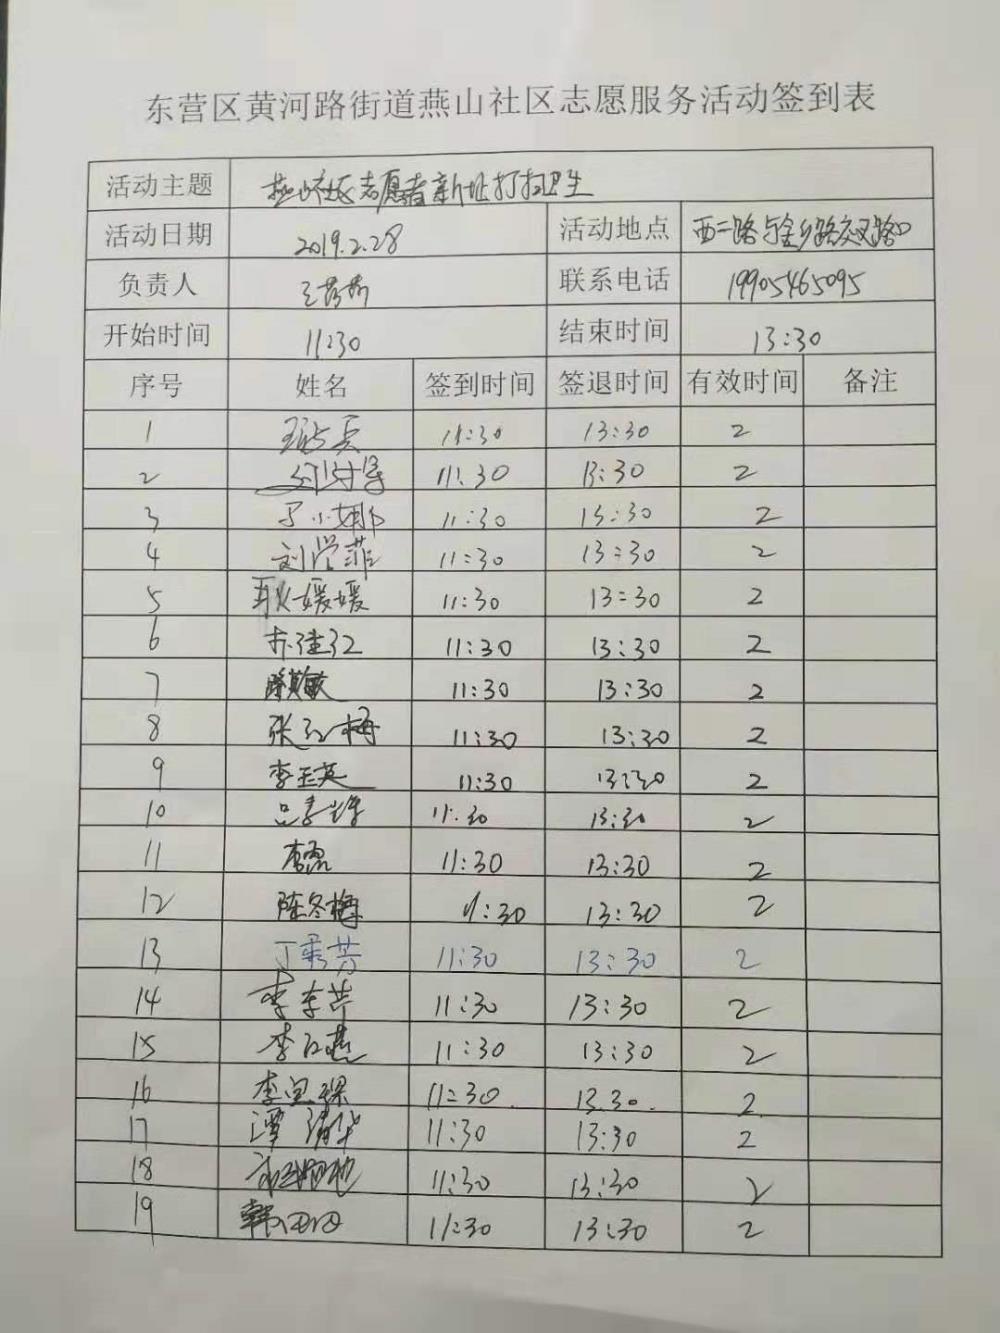 东营区黄河路街道燕山社区志愿服务活动签到表
活动主题 燕山社区志愿者新址打扫卫生
活动日期 2019.2.28 活动地点 西二路与金乡路交叉路口
负责人 联系电话 19905465095
开始时间 11:30 结束时间 13:30
序号 姓名 签到时间 签退时间 有效时间 备注
1 11:30 13:30 2
2 11:30 13:30 2
3 丁小娜 11:30 13:30 2
4 刘学菲 11:30 13:30 2
5 耿媛媛 11:30 13:30 2
6 11:30 13:30 2
7 11:30 13:30 2
8 张红梅 11:30 13:30 2
9 李玉英 11:30 13:30 2
10 11:30 13:30 2
11 李磊 11:30 13:30 2
12 陈冬梅 11:30 13:30 2
13 丁秀芳 11:30 13:30 2
14 李东芹 11:30 13:30 2
15 李红燕 11:30 13:30 2
16 11:30 13:30 2
17 11:30 13:30 2
18 11:30 13:30 2
19 韩田田 11:30 13:30 2